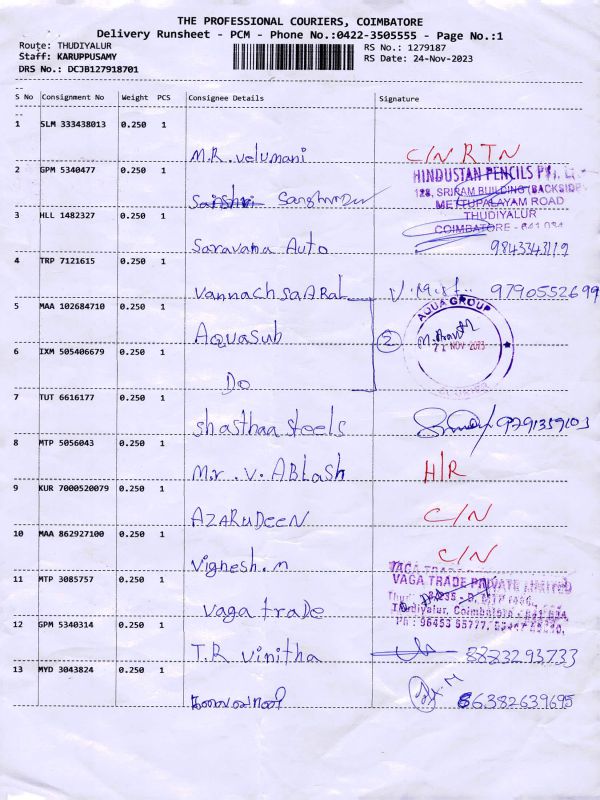 THE PROFESSIONAL COURIERS, COIMBATORE
Delivery Runsheet - PCM - Phone No.:0422-3505555 - Page No.:1
Route: THUDIYALUR
RS No.: 1279187
Staff: KARUPPUSAMY
RS Date: 24-Nov-2023
DRS No.: DCJB127918701
S No Consignment No Weight PCS Consignee Details Signature
1 SLM 333438013 0.250 1
M.R. Velumani C/N RTN
2 GPM 5340477 0.250 1
HINDUSTAN PENCILS
128, SRIRAM BUILDING (BACKSIDE
METTUPALAYAM ROAD
3 HLL 1482327 0.250 1
THUDIYALUR
COIMBATORE - 641 034
Saravana Auto
4 TRP 7121615 0.250 1
9790552699
5 MAA 102684710 0.250 1
AQUA GROUP
Aquasub 2
NOV 2023
6 IXM 505406679 0.250 1
Do
7 TUT 6616177 0.250 1
Shasthaa Steels
8 MTP 5056043 0.250 1
Mr. V. ABLash H/R
9 KUR 7000520079 0.250 1
AZARUDEEN C/N
10 MAA 862927100 0.250 1
Vighesh. m C/N
VAGA TRADE PRIVATE LIMITED
11 MTP 3085757 0.250 1
Thudiyalur, Coimbatore
Vaga trade
12 GPM 5340314 0.250 1
T.R Vinitha 8883293733
13 MYD 3043824 0.250 1
6382639695